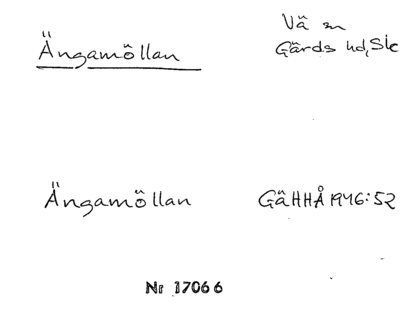 Ängamöllan
Vä sn
Gärds hd, Sk
Ängamöllan
GäHHÅ 1946:52
Nr 17066